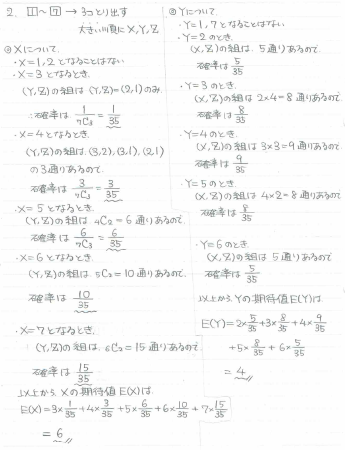 2. [1]~[7] → 3つとり出す
大きい順に X, Y, Z
◎Xについて.
・X=1,2となることはない
・X=3となるとき.
(Y,Z)の組は (Y,Z)=(2,1)のみ.
∴確率は 1/7C3 = 1/35
・X=4となるとき.
(Y,Z)の組は.(3,2),(3,1),(2,1)
の3通りあるので.
確率は 3/7C3 = 3/35
・X=5となるとき.
(Y,Z)の組は 4C2=6通りあるので.
確率は 6/7C3 = 6/35
・X=6となるとき
(Y,Z)の組は. 5C2=10通りあるので.
確率は 10/35
・X=7となるとき.
(Y,Z)の組は. 6C2=15通りあるので
確率は 15/35
以上から. Xの期待値E(X)は.
E(X)=3×1/35+4×3/35+5×6/35+6×10/35+7×15/35
=6
◎Yについて.
・Y=1,7となることはない
・Y=2のとき.
(X,Z)の組は 5通りあるので.
確率は 5/35
・Y=3のとき.
(X,Z)の組は 2×4=8通りあるので.
確率は 8/35
・Y=4のとき.
(X,Z)の組は 3×3=9通りあるので.
確率は 9/35
・Y=5のとき
(X,Z)の組は 4×2=8通りあるので.
確率は 8/35
・Y=6のとき
(X,Z)の組は 5通りあるので
確率は 5/35
以上から. Yの期待値E(Y)は.
E(Y)=2×5/35+3×8/35+4×9/35
+5×8/35+6×5/35
=4